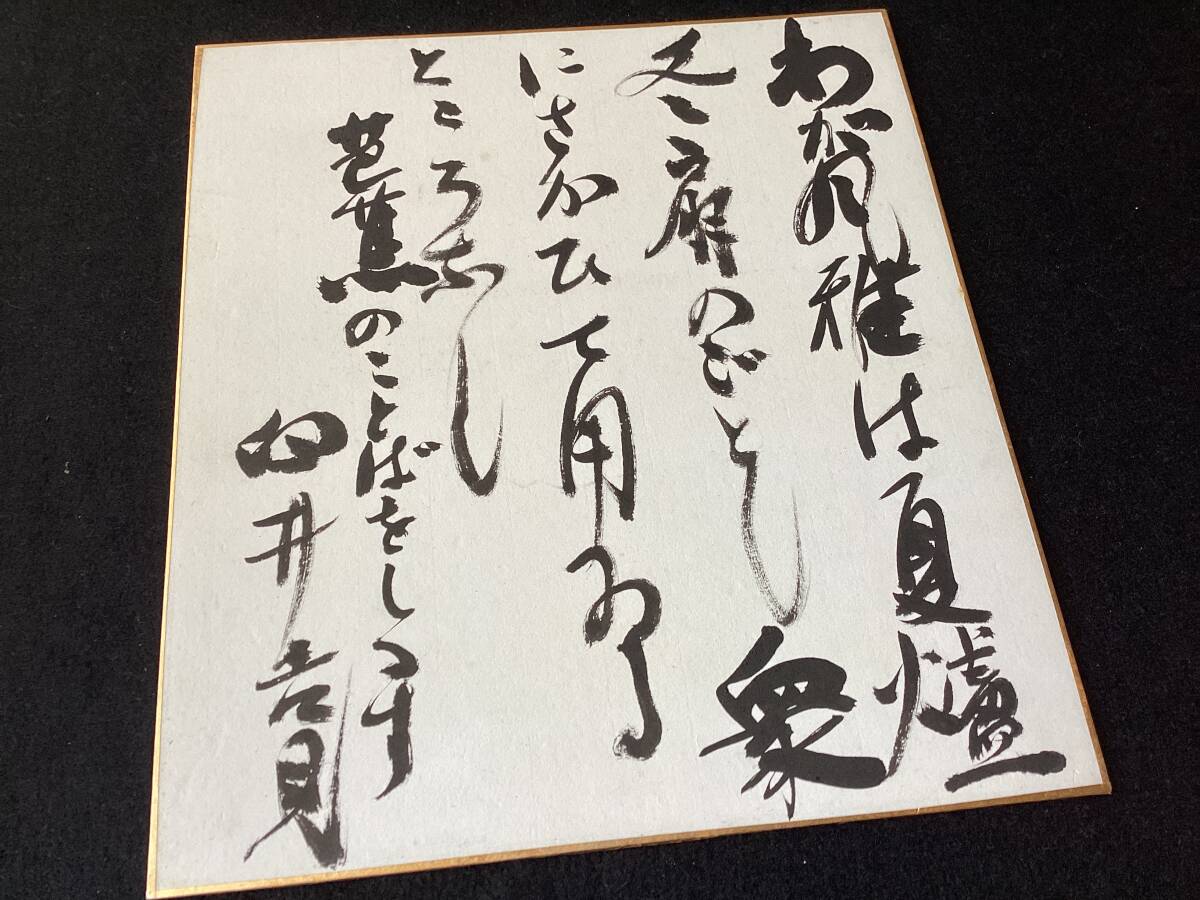 わが風雅は夏爐
冬扇のごとし 衆
にさかひて用ゐる
ところなし
芭蕉のことばをしるす
臼井吉見